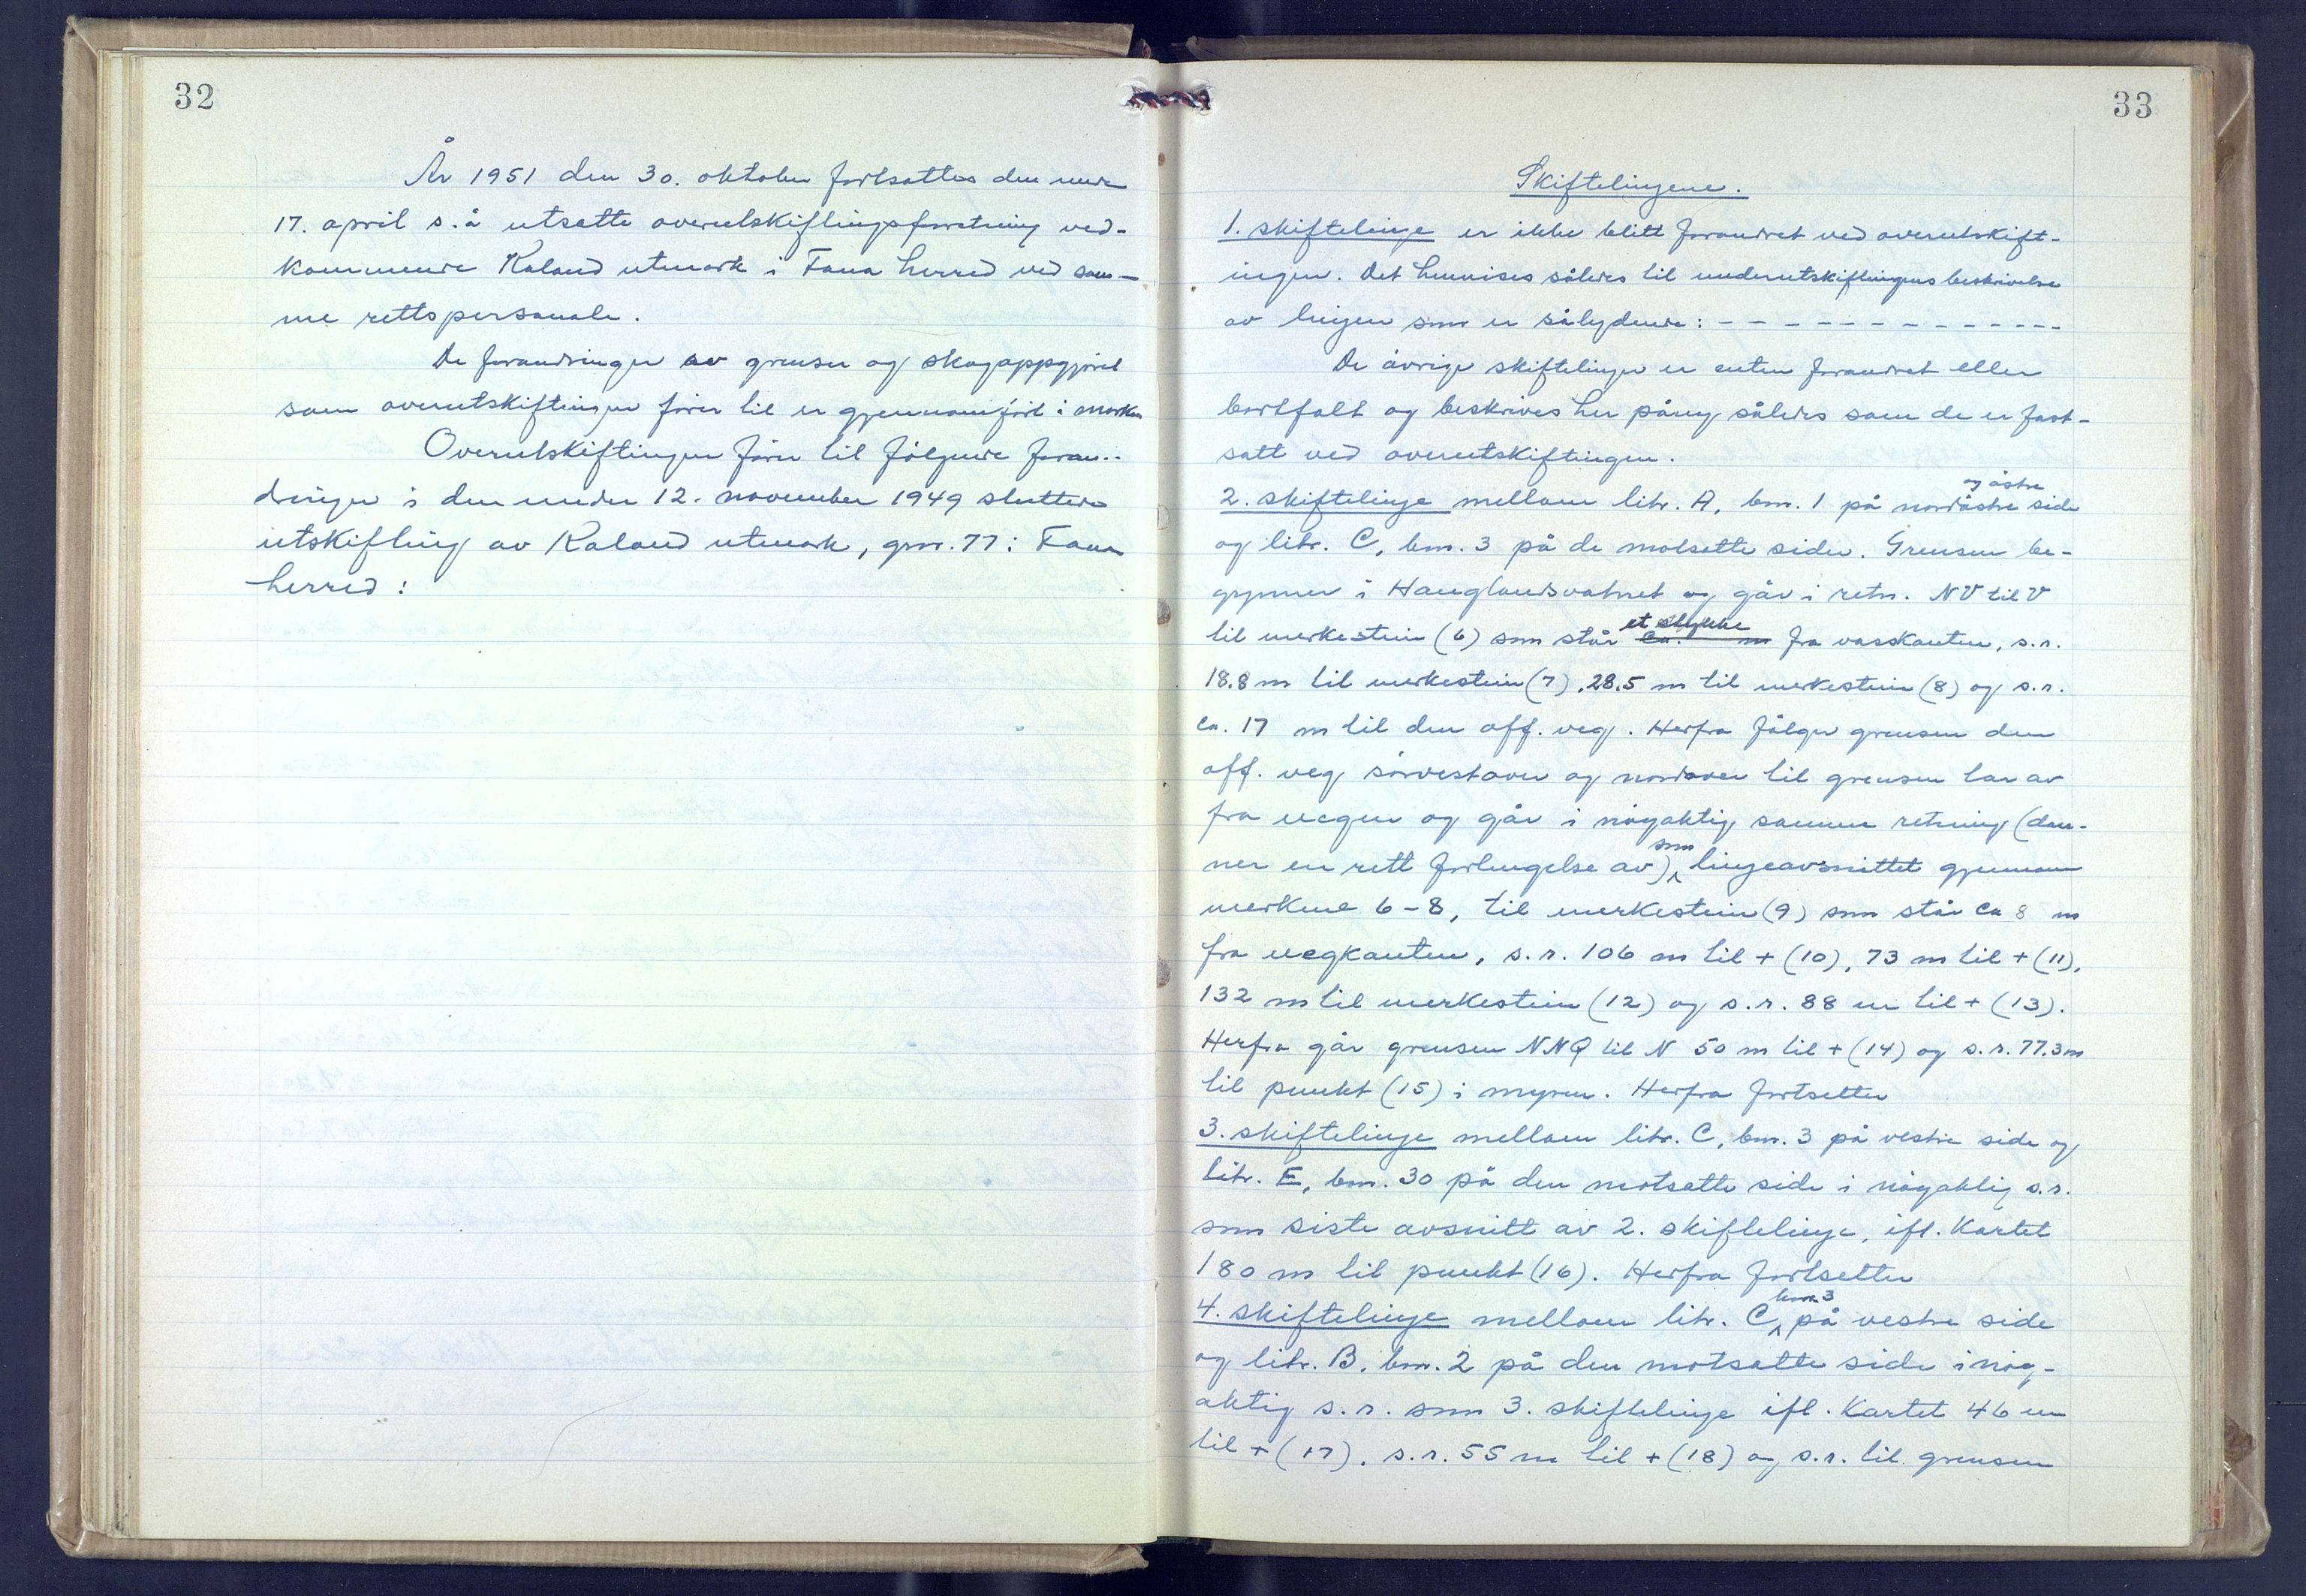 32
År 1951 den 30. oktober fortsattes den under
17. april s.å utsatte overutskiftingsforretning ved-
kommende Kaland utmark i Fana herred ved sam-
me rettspersonale.
De forandringer av grenser og skogoppgjöret
som overutskiftingen förer til er gjennomfört i marken
Overutskiftingen förer til fölgende foran-
dringer i den under 12. november 1949 sluttede
utskifting av Kaland utmark, gnr. 77 i Fana
herred:
33
Skiftelinjene.
1. skiftelinje er ikke blitt forandret ved overutskift-
ingen. Det henvises således til underutskiftingens beskrivelse
av linjen som er sålydende: - - - - - - - - - - - - - -
De övrige skiftelinjer er enten forandret eller
bortfalt og beskrives her påny således som de er fast-
satt ved overutskiftingen.
og östre
2. skiftelinje mellom litr. A, bnr. 1 på nordöstre side
og litr. C, bnr. 3 på de motsatte sider. Grensen be-
gynner i Hauglandsvatnet og går i retn. NV til V
et stykke
til merkestein (6) som står ca. m fra vasskanten, s.r.
18.8 m til merkestein (7), 28.5 m til merkestein (8) og s.r.
ca. 17 m til den off. veg. Herfra fölger grensen den
off. veg sörvestover og nordover til grensen tar av
fra vegen og går i nöyaktig samme retning (dan-
som
ner en rett forlengelse av) linjeavsnittet gjennom
merkene 6-8, til merkestein (9) som står ca 8 m
fra vegkanten, s.r. 106 m til + (10), 73 m til + (11),
132 m til merkestein (12) og s.r. 88 m til + (13).
Herfra går grensen NNØ til N 50 m til + (14) og s.r. 77.3 m
til punkt (15) i myren. Herfra fortsetter
3. skiftelinje mellom litr. C, bnr. 3 på vestre side og
litr. E, bnr. 30 på den motsatte side i nöyaktig s.r.
som siste avsnitt av 2. skiftelinje, ifl. Kartet
180 m til punkt (16). Herfra fortsetter
bnr. 3
4. skiftelinje mellom litr. C, på vestre side
og litr. B, bnr. 2 på den motsatte side i nöy-
aktig s.r. som 3. skiftelinje ifl. Kartet 46 m
til + (17), s.r. 55 m til + (18) og s.r. til grensen